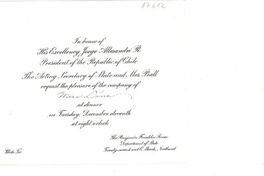 In honor of
His Excellency Jorge Alessandri R.
President of the Republic of Chile
The Acting Secretary of State and Mrs. Ball
request the pleasure of the company of
at dinner
on Tuesday, December eleventh
at eight o'clock
The Benjamin Franklin Room
Department of State
Twenty-second and C Streets, Northwest
White Tie